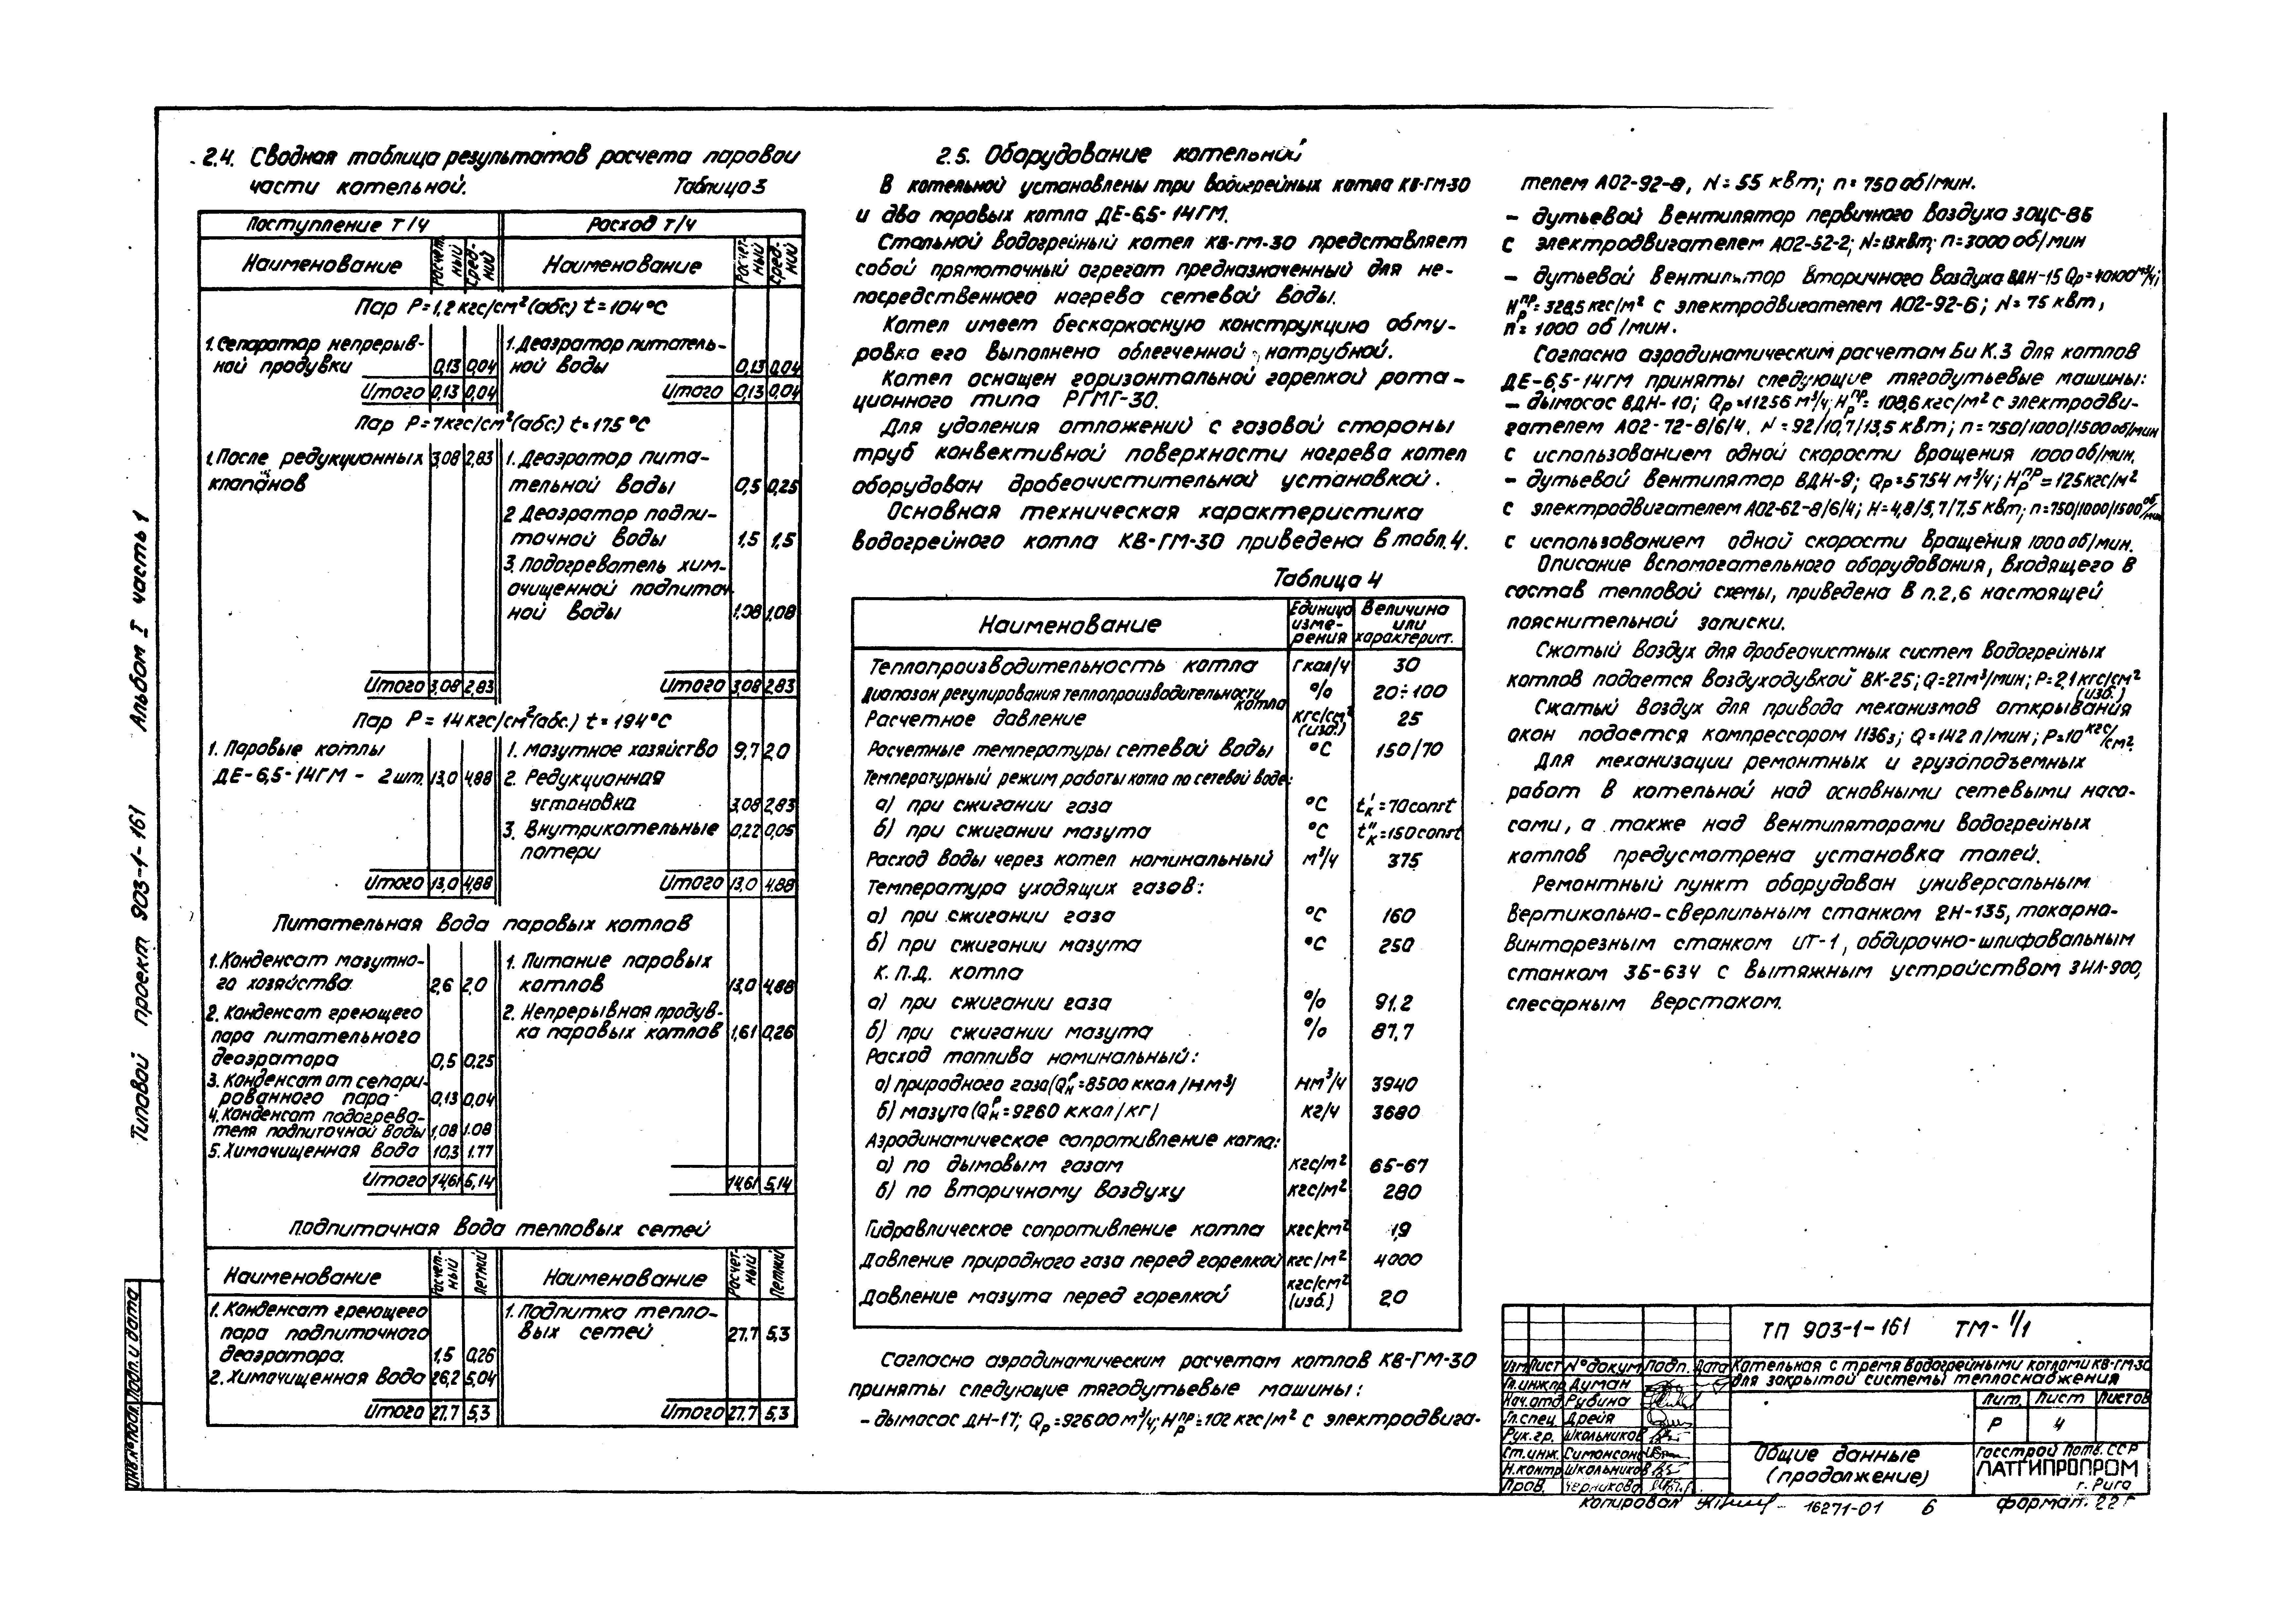 2.4. Сводная таблица результатов расчета паровой
части котельной. Таблица 3
Поступление т/ч Расход т/ч
Наименование Расчетный Средний Наименование Расчетный Средний
Пар Р=1,2 кгс/см² (абс.) t=104°С
1. Сепаратор непрерыв- 1. Деаэратор питатель-
ной продувки 0,13 0,04 ной воды 0,13 0,04
Итого 0,13 0,04 Итого 0,13 0,04
Пар Р=7кгс/см² (абс.) t=175°С
1. После редукционных 3,08 2,83 1. Деаэратор пита-
клапанов тельной воды 0,5 0,25
2 Деаэратор подпи-
точной воды 1,5 1,5
3. Подогреватель хим-
очищенной подпиточ
ной воды 1,08 1,08
Итого 3,08 2,83 Итого 3,08 2,83
Пар Р=14 кгс/см² (абс.) t=194°С
1. Паровые котлы 1. Мазутное хозяйство 9,7 2,0
ДЕ-6,5-14ГМ - 2 шт. 13,0 4,88 2. Редукционная
установка 3,08 2,83
3. Внутрикотельные 0,22 0,05
потери
Итого 13,0 4,88 Итого 13,0 4,88
Питательная вода паровых котлов
1. Конденсат мазутно- 1. Питание паровых
го хозяйства 2,6 2,0 котлов 13,0 4,88
2. Конденсат греющего 2. Непрерывная продув-
пара питательного ка паровых котлов 1,61 0,26
деаэратора 0,5 0,25
3. Конденсат от сепари-
рованного пара 0,13 0,04
4. Конденсат подогрева-
теля подпиточной воды 1,08 1.08
5. Химочищенная вода 10,3 1.77
Итого 14,61 5,14 14,61 5,14
Подпиточная вода тепловых сетей
Наименование Расчетный Летний Наименование Расчетный Летний
1. Конденсат греющего 1. Подпитка тепло-
пара подпиточного вых сетей 27.7 5,3
деаэратора. 1,5 0,26
2. Химочищенная вода 26,2 5,04
Итого 27.7 5,3 Итого 27.7 5,3
2.5. Оборудование котельной
В котельной установлены три водогрейных котла КВ-ГМ-30
и два паровых котла ДЕ-6,5-14ГМ.
Стальной водогрейный котел КВ-ГМ-30 представляет
собой прямоточный агрегат предназначенный для не-
посредственного нагрева сетевой воды.
Котел имеет бескаркасную конструкцию обму-
ровка его выполнена облегченной, натрубной.
Котел оснащен горизонтальной горелкой рота-
ционного типа РГМГ-30.
Для удаления отложений с газовой стороны
труб конвективной поверхности нагрева котел
оборудован дробеочистительной установкой.
Основная техническая характеристика
водогрейного котла КВ-ГМ-30 приведена в табл. 4.
Таблица 4
Наименование Единица измерения Величина или характерист.
Теплопроизводительность котла Гкал/ч 30
Диапазон регулирования теплопроизводительности котла % 20÷100
Расчетное давление кгс/см² (изб.) 25
Расчетные температуры сетевой воды °С 150/70
Температурный режим работы котла по сетевой воде:
а) при сжигании газа °С t'к=70const
б) при сжигании мазута °С t"к=150const
Расход воды через котел номинальный м³/ч 375
Температура уходящих газов:
а) при сжигании газа °С 160
б) при сжигании мазута °С 250
К.П.Д. котла
а) при сжигании газа % 91.2
б) при сжигании мазута % 87,7
Расход топлива номинальный:
а) природного газа (Qрн=8500 ккал/нм³) нм³/ч 3940
б) мазута (Qрн=9260 ккал/кг) кг/ч 3680
Аэродинамическое сопротивление котла:
а) по дымовым газам кгс/м² 65-67
б) по вторичному воздуху кгс/м² 280
Гидравлическое сопротивление котла кгс/см² 1,9
Давление природного газа перед горелкой кгс/м² 4000
Давление мазута перед горелкой кгс/см² (изб.) 2,0
Согласно аэродинамическим расчетам котлов КВ-ГМ-30
приняты следующие тягодутьевые машины:
- дымосос ДН-17; Qр=92600 м³/ч; Нпрр=102 кгс/м² с электродвига-
телем АО2-92-8, N=55 кВт; n=750 об/мин.
- дутьевой вентилятор первичного воздуха 30ЦС-85
с электродвигателем АО2-52-2; N=13кВт; n=3000 об/мин
- дутьевой вентилятор вторичного воздуха ВДН-15 Qр=40100м³/ч;
Нпрр=328,5 кгс/м² с электродвигателем АО2-92-6; N=75 кВт,
n=1000 об/мин.
Согласно аэродинамическим расчетам БиКЗ для котлов
ДЕ-6,5-14ГМ приняты следующие тягодутьевые машины:
- дымосос ВДН-10; Qр=11256 м³/ч; Нпрр=108,6 кгс/м² с электродви-
гателем АО2-72-8/6/4. N=92/10,7/13,5 кВт; n=750/1000/1500об/мин
с использованием одной скорости вращения 1000 об/мин,
- дутьевой вентилятор ВДН-9; Qр=5754 м³/ч; Нпрр=125кгс/м²
с электродвигателем АО2-62-8/6/4; Н=4,8/5,7/7,5 кВт; n=750/1000/1500 об/мин
с использованием одной скорости вращения 1000 об/мин.
Описание вспомогательного оборудования, входящего в
состав тепловой схемы, приведена в п.2,6 настоящей
пояснительной записки.
Сжатый воздух для дробеочистных систем водогрейных
котлов подается воздуходувкой ВК-25; Q=27м³/мин; Р=2,1кгс/см² (изб.)
Сжатый воздух для привода механизмов открывания
окон подается компрессором 1136з; Q=142 л/мин; Р=10 кгс/см².
Для механизации ремонтных и грузоподъемных
работ в котельной над основными сетевыми насо-
сами, а также над вентиляторами водогрейных
котлов предусмотрена установка талей.
Ремонтный пункт оборудован универсальным
вертикально-сверлильным станком 2Н-135, токарно-
винторезным станком ИТ-1, обдирочно-шлифовальным
станком 3Б-634 с вытяжным устройством ЗИЛ-900,
слесарным верстаком.
ТП 903-1-161 ТМ-1/1
Изм Лист № докум Подп. Дата Котельная с тремя водогрейными котлами КВ-ГМ-30
для закрытой системы теплоснабжения
Гл.инж.пр Думан
Нач.отд Рубина Лит. Лист Листов
Гл.спец Дрейя Р 4
Рук.гр. Школьников
Ст.инж. Симонсон Общие данные Госстрой Латв.ССР
Н.контр Школьников (продолжение) ЛАТГИПРОПРОМ
Пров. Черникова г. Рига
Копировал 16271-01 6 формат 22Г
Типовой проект 903-1-161 Альбом I часть 1
Инв.№подл. Подп. и дата